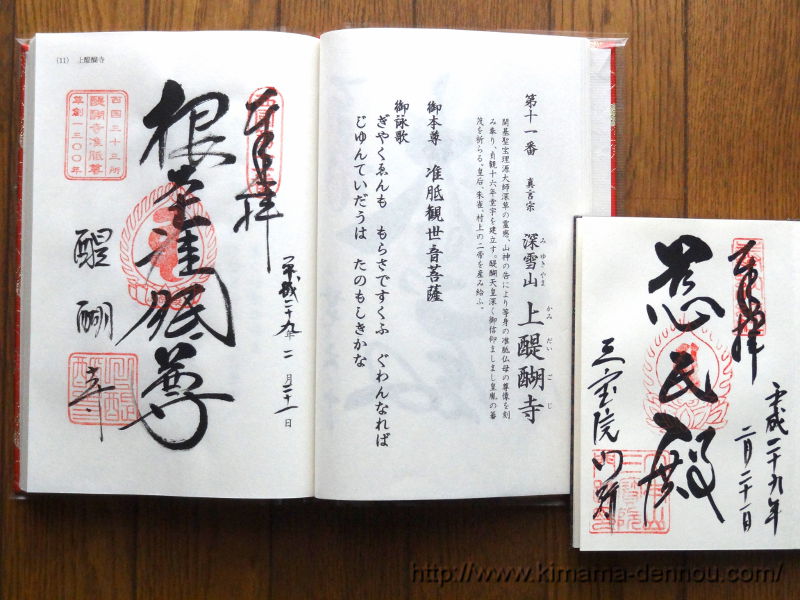 (11) 上醍醐寺
奉拝
平成二十九年二月二十一日
根本准胝尊
醍醐寺
西国三十三所
醍醐寺准胝尊
草創一三〇〇年
第十一番 真言宗 深雪山 上醍醐寺
みゆきやま かみだいごじ
開基聖宝理源大師深草の霊感、山神の告により等身の准胝仏母の尊像を刻
み奉り、貞観十六年堂宇を建立す。醍醐天皇深く御信仰ましまし皇胤の蕃
茂を祈らる。皇后、朱雀、村上の二帝を産み給ふ。
御本尊 准胝観世音菩薩
御詠歌
ぎやくゑんも もらさですくふ ぐわんなれば
じゆんていだうは たのもしきかな
奉拝
平成二十九年
二月二十一日
慈氏殿
三宝院門跡
http://www.kimama-dennou.com/